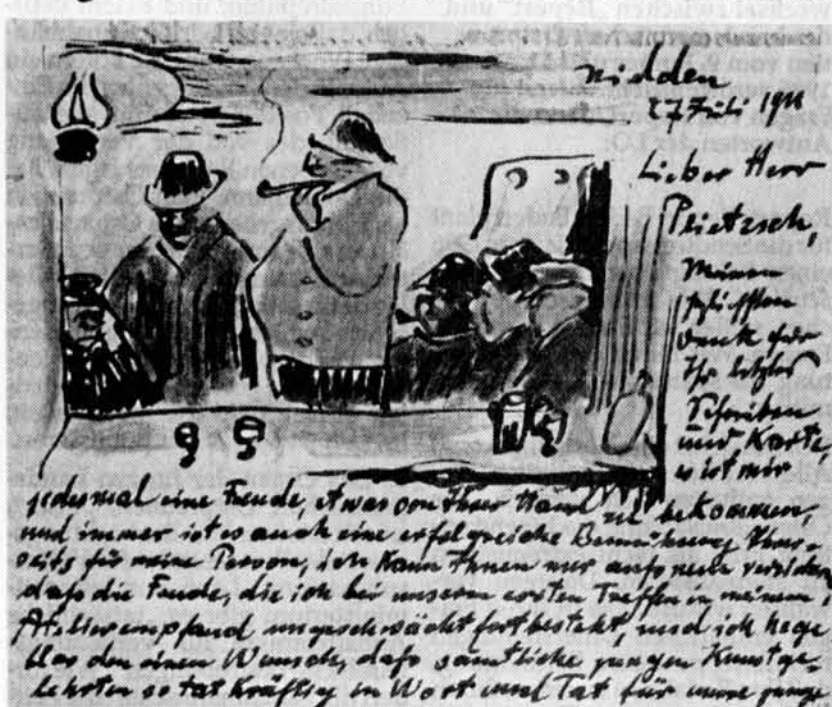 Nidden
27 Juli 1911
Lieber Herr
Plietzsch,
Meinen
herzlichsten
Dank für
Ihr letztes
Schreiben
und Karte,
es ist mir
jedesmal eine Freude, etwas von Ihrer Hand zu bekommen,
und immer ist es auch eine erfolgreiche Bemühung Ihrer-
seits für meine Person, ich kann Ihnen nur aufs neue
daß die Freude, die ich bei unserem ersten Treffen in meinem
Atelier empfand ungeschwächt fortbesteht, und ich hege
blos den einen Wunsch, daß sämtliche jungen Kunstge-
lehrten so tatkräftig in Wort und Tat für unsere junge